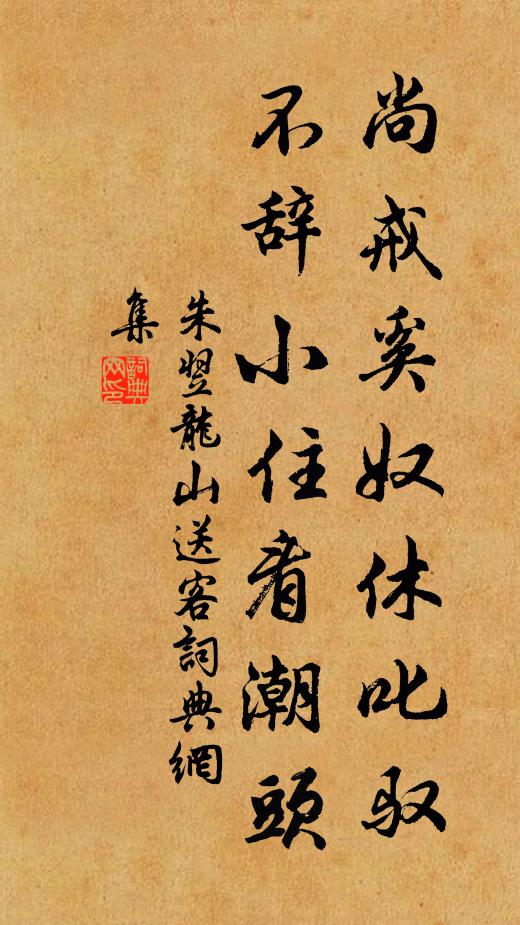 尚戒奚奴休叱驭
不辞小住看潮頭
朱翌龍山送客詞典網
集
詞典网印